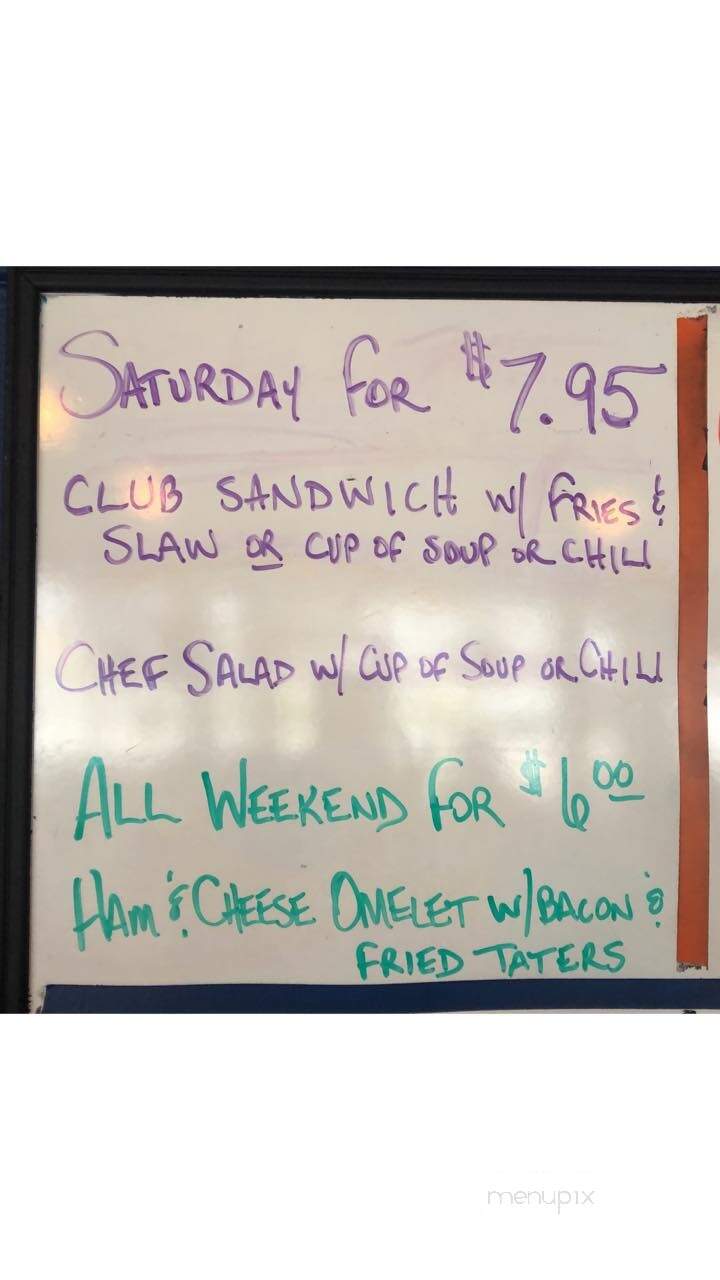 SATURDAY FOR $7.95
CLUB SANDWICH W/ FRIES &
SLAW OR CUP OF SOUP OR CHILI
CHEF SALAD W/ CUP OF SOUP OR CHILI
ALL WEEKEND FOR $6.00
HAM & CHEESE OMELET W/BACON &
FRIED TATERS
menupix